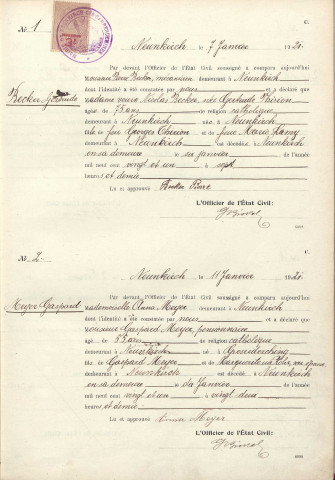 C.
№ 1
Neunkirch le 7 Janvier 1921.
Par devant l'Officier de l'État Civil soussigné a comparu aujourd'hui
Monsieur Pierre Becker, mécanicien demeurant à Neunkirch
dont l'identité a été constatée par nous et a déclaré que
Becker, Gertrude
madame veuve Nicolas Becker, née Gertrude Thirion
âgée de 75 ans de religion catholique
demeurant à Neunkirch née à Neunkirch
fille de feu Georges Thirion et de feue Marie Lamy
demeurant à Neunkirch est décédée à Neunkirch
en sa demeure le six janvier de l'année
mil neuf cent vingt et un à sept
heures et demie
Lu et approuvé Becker Pierre
L'Officier de l'État Civil:
C.
№ 2.
Neunkirch le 11 Janvier 1921.
Par devant l'Officier de l'État Civil soussigné a comparu aujourd'hui
Meyer Gaspard
mademoiselle Anna Meyer demeurant à Neunkirch
dont l'identité a été constatée par nous et a déclaré que
monsieur Gaspard Meyer, pensionnaire
âgé de 55 ans de religion catholique
demeurant à Neunkirch né à
fils de Gaspard Meyer et de Marguerite
demeurant à Neunkirch est décédé à Neunkirch
en sa demeure le dix janvier de l'année
mil neuf cent vingt et un à vingt deux
heures et demie
Lu et approuvé Anna Meyer
L'Officier de l'État Civil: